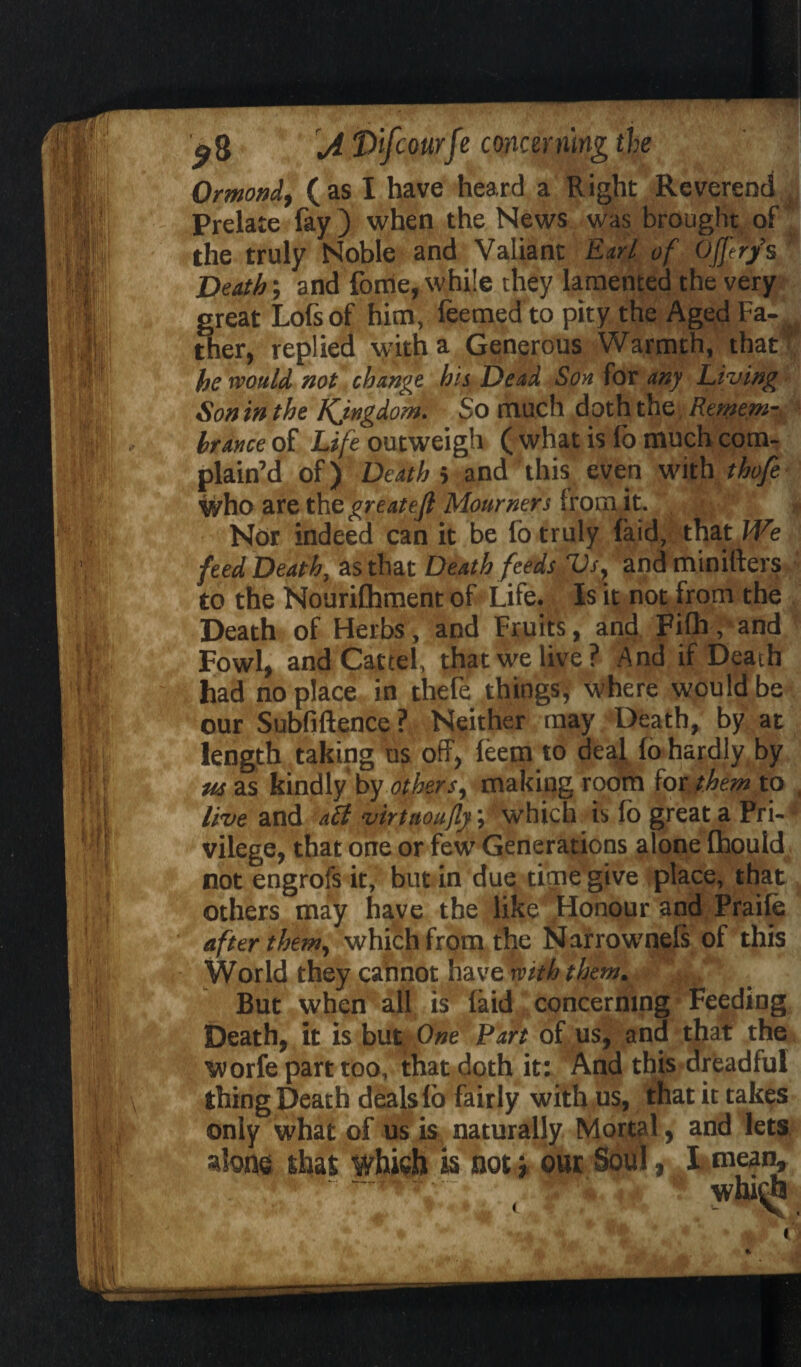 98 A Diſcourſe concerning the
Ormond, (as I have heard a Right Reverend
Prelate ſay) when the News was brought of
the truly Noble and Valiant Earl of Oſſery's
Death; and ſome, while they lamented the very
great Loſs of him, ſeemed to pity the Aged Fa-
ther, replied with a Generous Warmth, that
he would not change his Dead Son for any Living
Son in the Kingdom. So much doth the Remem-
brance of Life outweigh (what is ſo much com-
plain'd of) Death; and this even with thoſe
who are the greateſt Mourners from it.
Nor indeed can it be ſo truly ſaid, that We
feed Death, as that Death feeds Us, and miniſters
to the Nouriſhment of Life. Is it not from the
Death of Herbs, and Fruits, and Fiſh, and
Fowl, and Cattel, that we live? And if Death
had no place in theſe things, where would be
our Subſiſtence? Neither may Death, by at
length taking us off, ſeem to deal ſo hardly by
us as kindly by others, making room for them to
live and act virtuouſly; which is ſo great a Pri-
vilege, that one or few Generations alone ſhould
not engroſs it, but in due time give place, that
others may have the like Honour and Praiſe
after them, which from the Narrowneſs of this
World they cannot have with them.
But when all is ſaid concerning Feeding
Death, it is but One Part of us, and that the
worſe part too, that doth it: And this dreadful
thing Death deals ſo fairly with us, that it takes
only what of us is naturally Mortal, and lets
alone that which is not; our Soul, I mean,
which